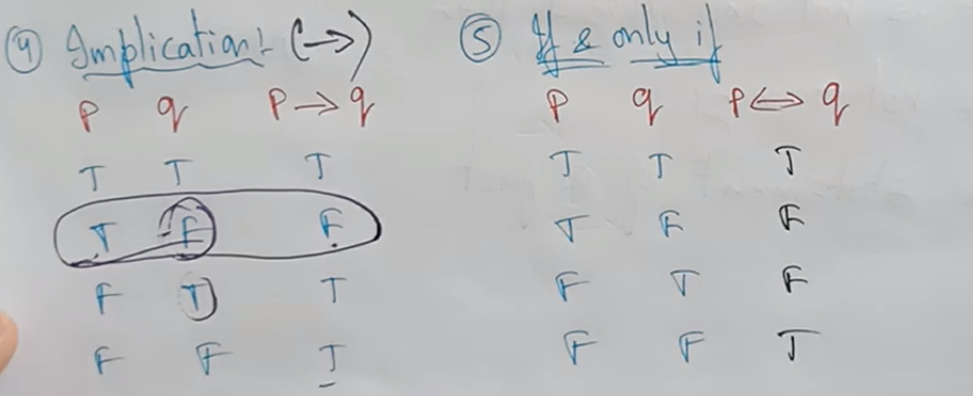 ④ Implication! (→)
P q P → q
T T T
T F F
F T T
F F T
⑤ If & only if
P q P ⇔ q
T T T
T F F
F T F
F F T